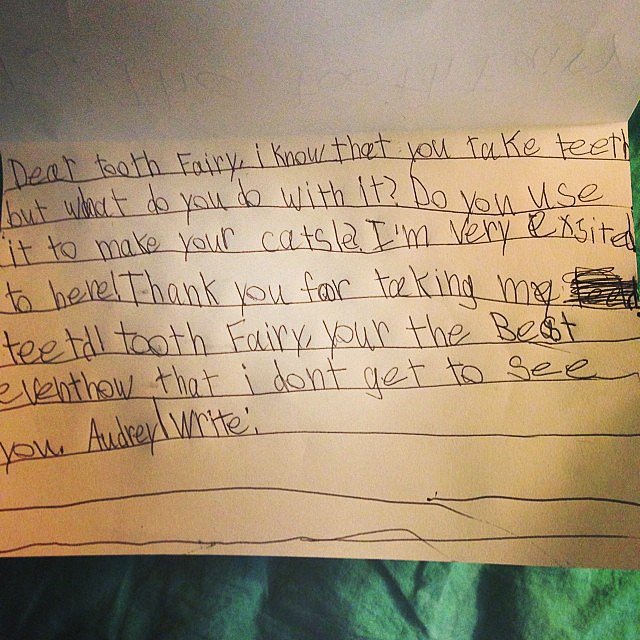 Dear tooth Fairy, i know that you take teeth
but what do you do with it? Do you use
it to make your catsle? I'm very exsited
to here! Thank you for taking my
teeth! tooth Fairy your the Best
eventhow that i dont get to see
you. Audrey! write: